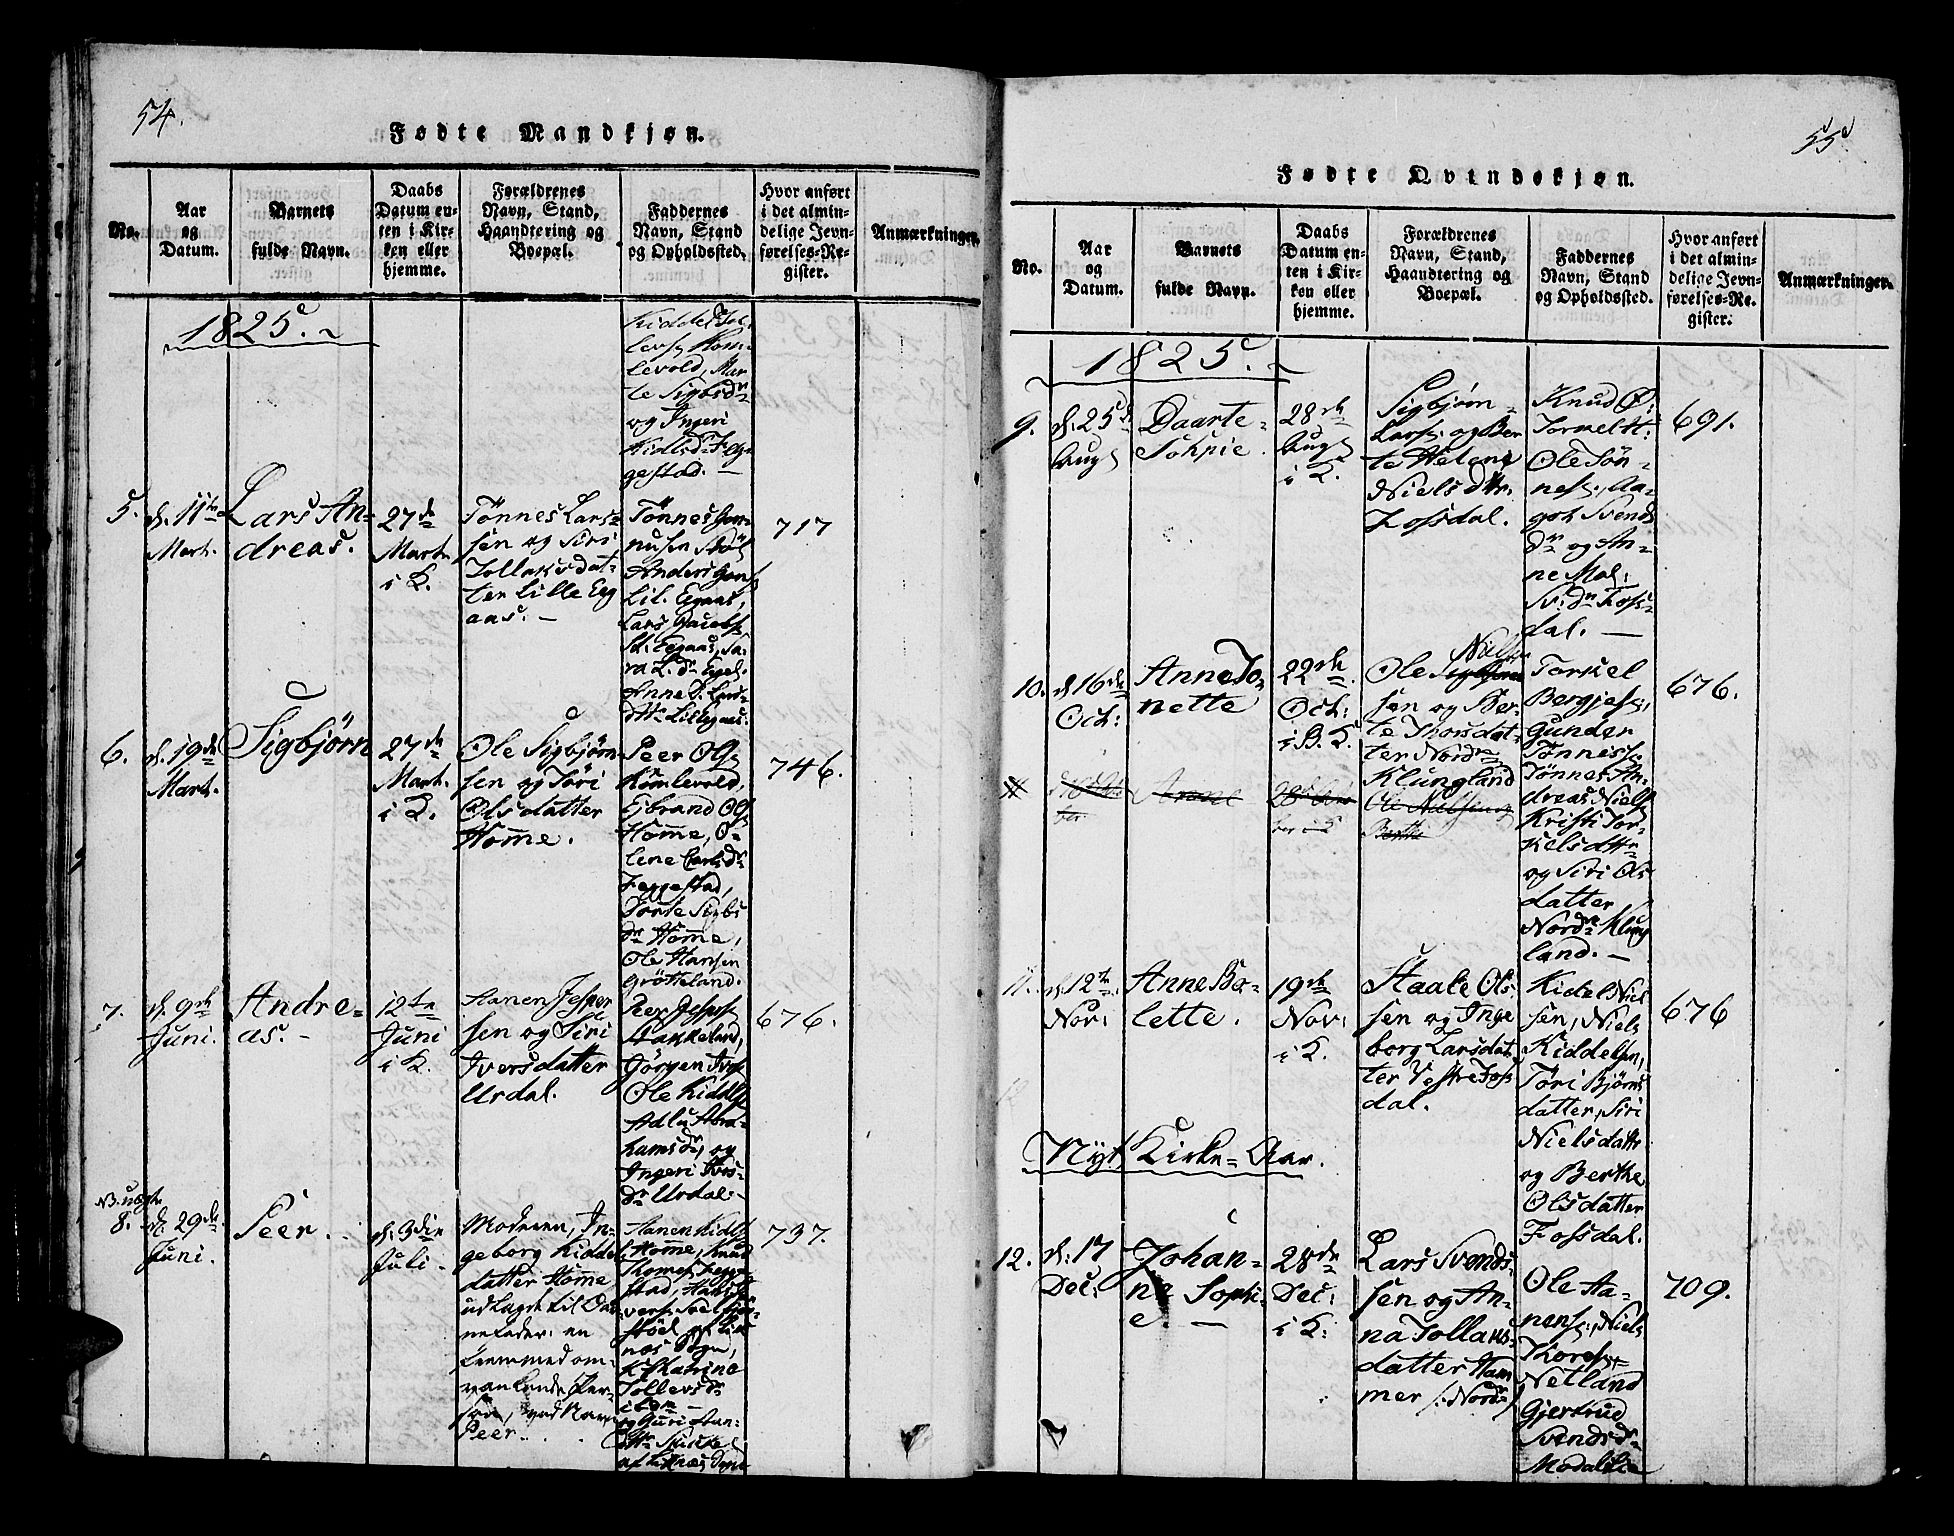 54.
Fødte Mandkjøn.
No.
Aar
og
Datum.
Barnets
fulde Navn.
Daabs
Datum en-
ten i Kir-
ken eller
hjemme.
Forældrenes
Navn, Stand,
Haandtering og
Boepæl.
Faddernes
Navn, Stand
og Opholdssted.
Hvor anført
i det almin-
delige Jevn-
førelses-Re-
gister.
Anmærkninger.
1825.
levold, Mar
te Sigbsdr
og Ingeri
gestad. —
5.
d. 11te
Mart.
Lars An-
dreas.
27de
Mart.
i K.
Tönnes Lars-
sen og Siri
Tollaksdat-
ter Lille Eeg
aas. —
Tönnes Gun-
Lil. Egaas,
717
6.
d. 19de
Mart.
Sigbjørn
27de
Mart.
i K.
Ole Sigbjørn-
sen og Töri
Olsdatter
Homme.
Peer Ols.
Komlevold,
Ejbrand Ols
Homme, O-
lene Carlsdr
Feggestad,
Torte Sigbs
dr Homme,
Ole Hansen
Grötteland.
746.
7.
d. 9de
Juni.
Andre-
as. —
12te
Juni
i K.
Hanen Jesper
sen og Siri
Iversdatter
Urdal.
Peer Jespers
Hakkeland,
Jörgen Ivers
Ole Kidds
Adlu Abra-
hamsdr, og
Ingeri Ivers-
dr Urdal. —
676.
8.
d. 29de
Juni.
Peer.
d. 3die
Juli.
Moderen, In-
geborg Kidds
datter Homme
udlagt til Bar
nefader: en
fremmed om-
vankende Per-
son, ved Navn
Peer.
Hanen Kidds
Homme, Knud
Thomes. Fegge-
stad,
nes Sogn,
Kathrine
Tollevsdr
737.
55
Fødte Qvindekjøn.
No.
Aar
og
Datum.
Barnets
fulde Navn.
Daabs
Datum en-
ten i Kir-
ken eller
hjemme.
Forældrenes
Navn, Stand,
Haandtering og
Boepæl.
Faddernes
Navn, Stand
og Opholdssted.
Hvor anført
i det almin-
delige Jevn-
førelses-Re-
gister.
Anmærkninger.
1825.
9.
d. 25de
Aug.
Daarte-
Sophie.
28de
Aug.
i K.
Sigbjørn
Lars. og Ber
te Helene
Nielsdttr.
Fossdal.
Knud O:
Ole Tön-
nes., Aa-
got Svends
dr og An-
ne Mal:
Sv: dr Foss-
dal. —
691.
10.
d. 16de
Oct:
Anne To-
nette
22de
Oct:
i B. K.
Nielsen
Ole Sigbjørn
sen og Ber-
te Thorsdat-
ter Nordr
Klungland
Torkel
Bergjes.,
Gunder
Tönness.
Tönnes An-
dreas Niels
Kristi Tor-
kelsdttr
og Siri Ols
datter
Nordr Klung
land. —
676.
Anne
Ole Nielsen og
Berthe
11.
d. 12te
Nov:
Anne Bo-
lette.
19de
Nov:
i K.
Staale Ols
sen og Inge
borg Larsdat
ter Vestre Foss
dal.
Kidel Niel
sen, Niels
Kiddelsen,
Töri Bjørns
datter, Siri
Nielsdattr
og Berthe
Olsdatter
Fossdal.
676
Nyt Kirke-Aar.
12.
d. 17
Dec:
Johan-
ne Sophi-
e. —
28de
Dec:
i K:
Lars Svends-
sen og An-
na Tollaks-
datter Ham
mer (: Nordr)
Ole Aa-
nens:, Niels
Thores:,
Netland
Gjertrud
Svendsdr
709.